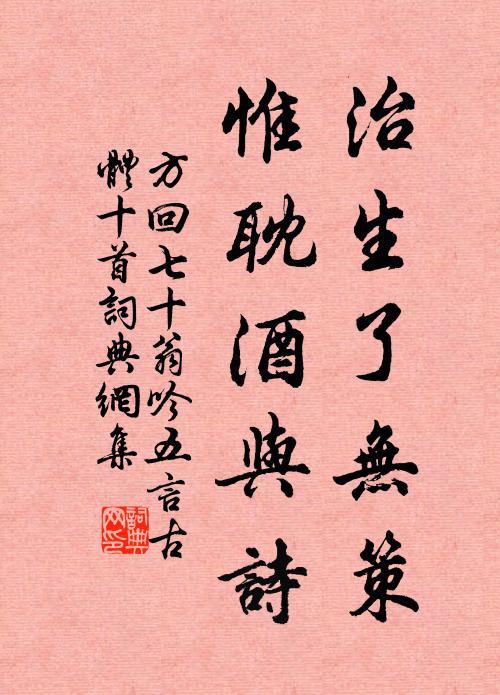 治生了無策
惟耽酒與詩
方回七十翁吟五言古
體十首詞典網集
詞典
网印